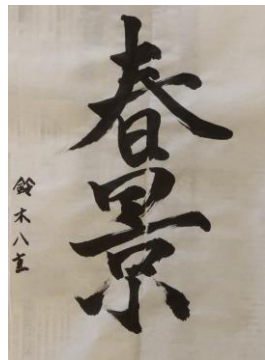 春景
鈴木八玄